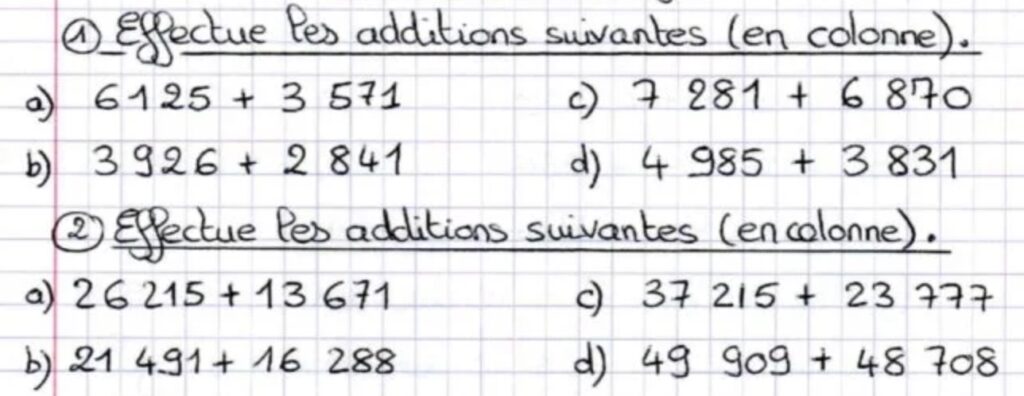 ① Effectue les additions suivantes (en colonne).
a) 6125 + 3 571 c) 7 281 + 6 870
b) 3 926 + 2 841 d) 4 985 + 3 831
② Effectue les additions suivantes (en colonne).
a) 26 215 + 13 671 c) 37 215 + 23 777
b) 21 491 + 16 288 d) 49 909 + 48 708